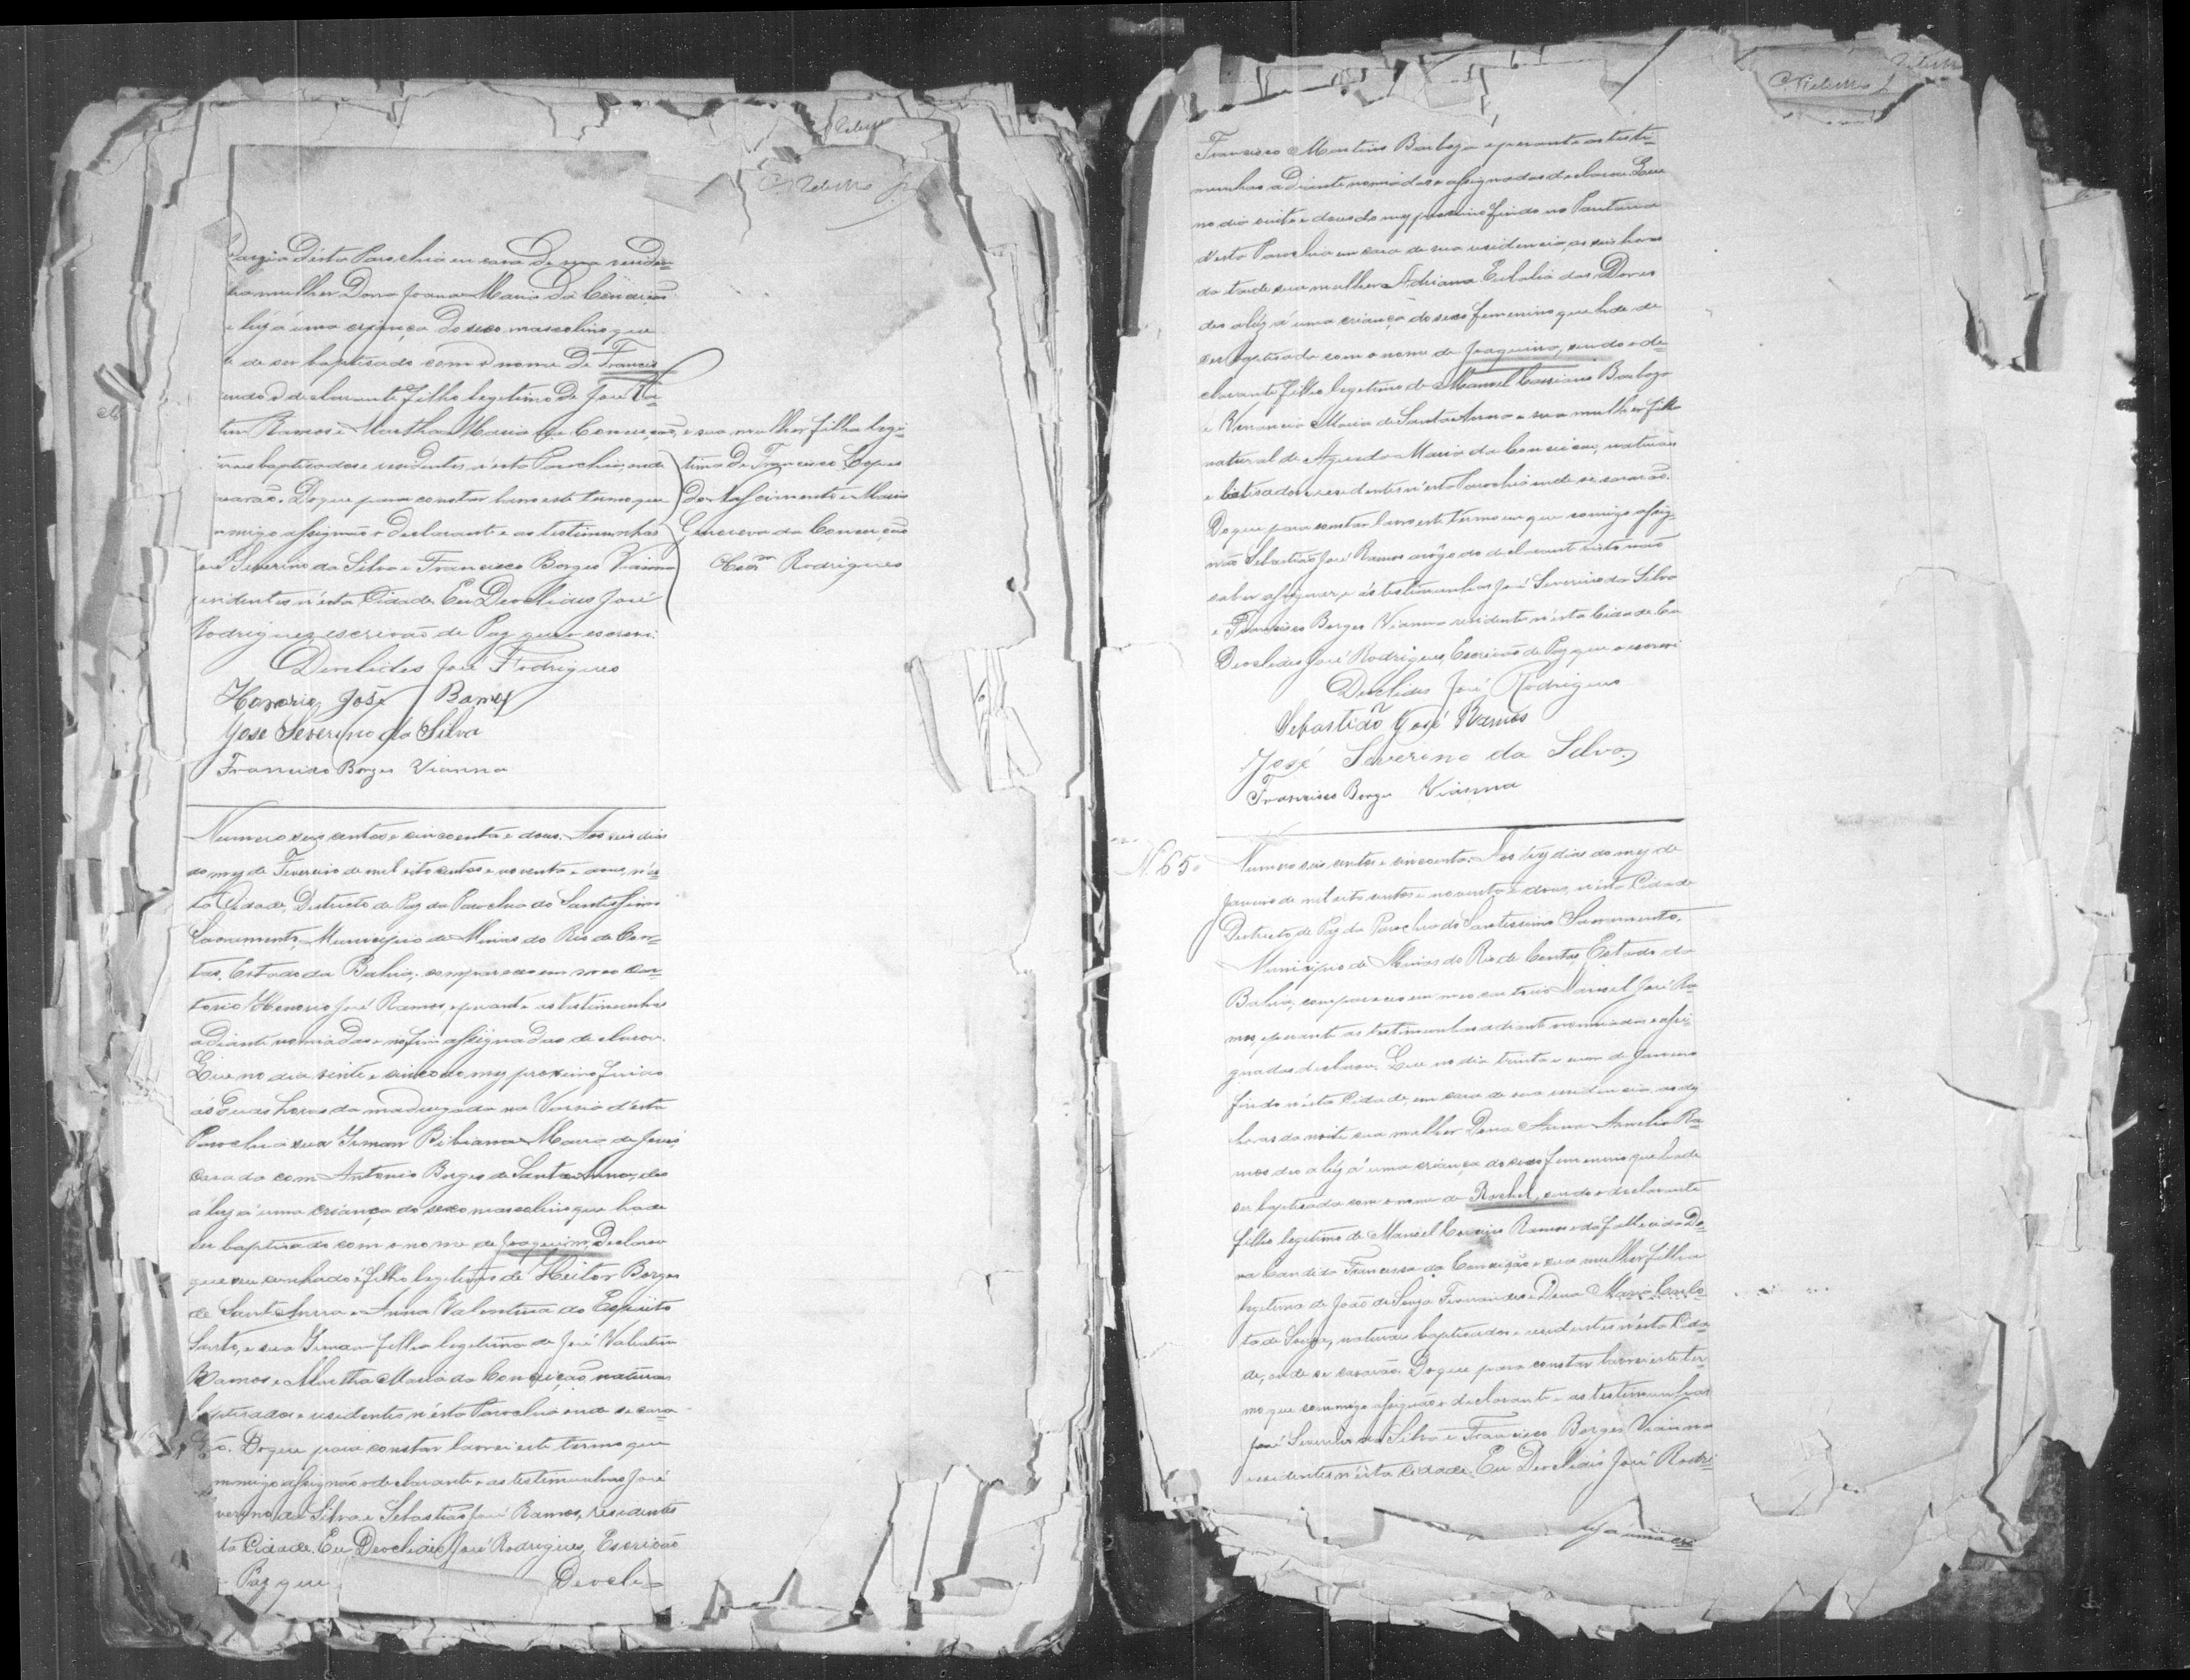 C. Rebello
Vargia d'esta Parochia em casa de sua residen=
cia mulher Dona Joanna Maria da Conceicão
á luz á uma criança do sexo masculino que
de ser baptisado com o nome de Francis
sendo o declarante filho legitimo de José Va=
tim Ramos e Martha Maria da Conceição, e sua mulher filha legi-
tima de Francisco Lopes
do Nascimento e Maria
Genoveva da Conceição
Escr.m Rodrigues
baptisados e residentes n'esta Parochia, onde
casarão. Do que para constar lavro este termo que
commigo assignão o declarante e as testimunhas
José Severino da Silva e Francisco Borges Vianna
residentes n'esta Cidade. Eu Deoclides José
Rodrigues escrivão de Paz que o escrevi.
Deoclides José Rodrigues
Honorio José Ramos
José Severino da Silva
Francisco Borges Vianna
Numero seis centos e cincoenta e dous. Aos seis dias
do mez de Fevereiro de mil oito centos e noventa e dous, n'es=
ta Cidade, Districto de Paz da Parochia do Santissimo
Sacramento, Municipio de Minas do Rio de Con=
tas, Estado da Bahia, compareceu em meo car=
torio Honorio José Ramos, e perante as testimunhas
adiante nomiadas e no fim assignadas declarou.
Que no dia vinte e cinco do mez proximo findo
ás duas horas da madrugada na Varzia d'esta
Parochia sua Irman Bibiana Maria de Jesus
casada com Antonio Borges de Santa Anna, deo
á luz á uma criança do sexo masculino que hade
ser baptisado com o nome de Joaquim, Declarou
que seu cunhado é filho legitimo de Heitor Borges
de Sant'Anna e Anna Valentina do Espirito
Santo, e sua Irman filha legitima de José Valentim
Ramos e Martha Maria da Conceição, naturaes
baptisados e residentes n'esta Parochia onde se casa-
rão. Do que para constar lavrei este termo que
commigo assignão o declarante e as testimunhas José
verino da Silva e Sebastião José Ramos, residentes
ta Cidade. Eu Deoclides José Rodrigues, Escrivão
Paz que Deocli=
C. Rebello
Francisco Martins Barboza e perante as testi=
munhas adiante nomiadas e assignadas declarou. Que
no dia vinte e dous do mez proximo findo no Pantano
d'esta Parochia em casa de sua residencia, as seis horas
da tarde sua mulher Adriana Eulalia das Dores
deo a luz á uma criança do sexo femenino que hade
ser baptisada com o nome de Joaquina, sendo o de=
clarante filho legitimo de Manoel Cassiano Barboza
e Venancia Maria de Santa Anna e sua mulher filha
natural de Agueda Maria da Conceicão, naturaes
e batisados e residentes n'esta Parochia onde se casarão.
Do que para constar lavro este termo em que comigo assig=
não Sebastião José Ramos arôgo do declarante visto não
saber assignar, e as testimunhas José Severino da Silva
e Francisco Borges Vianna residente n'esta Cidade. Eu
Deoclides José Rodrigues, Escrivão de Paz que o escrevi
Deoclides José Rodrigues
Sebastião José Ramos
José Severino da Silva
Francisco Borges Vianna
N. 650
Numero seis centos e cincoenta. Aos dez dias do mez de
Janeiro de mil oito centos e noventa e dous, n'esta Cidade
Districto de Paz da Parochia do Santissimo Sacramento,
Municipio de Minas do Rio de Contas, Estado da
Bahia, compareceo em meo cartorio Manoel José Ra=
mos, e perante as testimunhas adiante nomiadas e assi=
gnadas declarou. Que no dia trinta e um de Janeiro
findo n'esta Cidade, em casa de sua residencia, as dez
horas da noite sua mulher Dona Anna Amelia Ra=
mos deo a luz á uma criança do sexo femenino que hade
ser baptisada com o nome de Rachel, sendo o declarante
filho legitimo de Manoel Ramos e da fallecida Do=
na Candida Francisca da Conceição e sua mulher filha
legitima de João de Souza Fernandes e Dona Maria Carlo=
ta de Souza, naturaes baptisados e residentes n'esta Cida=
de, onde se casarão. Do que para constar lavrei este ter=
mo que commigo assignão o declarante e as testimunhas
José Severino da Silva e Francisco Borges Vianna
residentes n'esta Cidade. Eu Deoclides José Rodri=
luz a uma cri